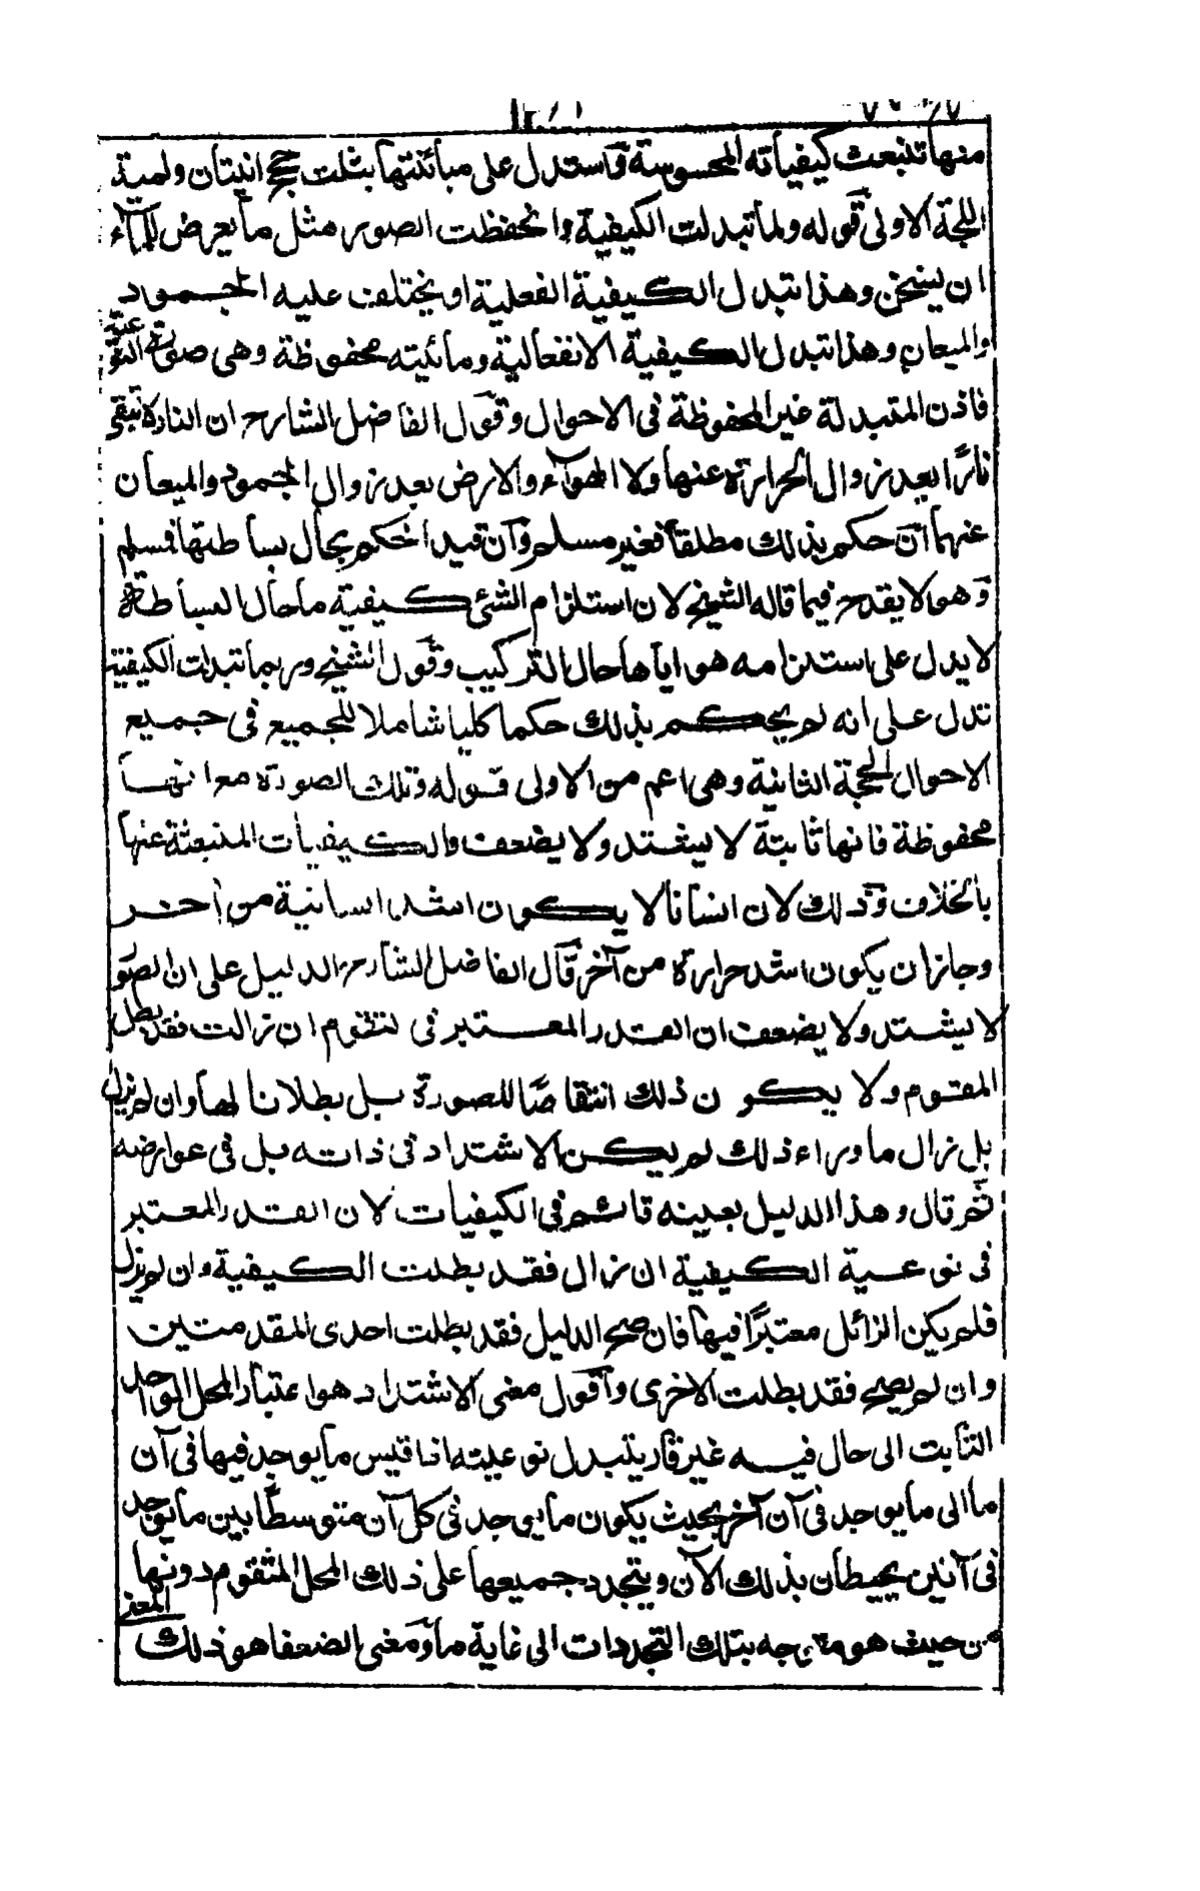 منها تنبعث كيفياته المحسوسة واستدل على مبائنتها بثلث حجج انيتان ولمية
الحجة الاولى قوله ولما تبدلت الكيفية وانحفظت الصور مثل ما يعرض للماء
ان يسخن وهذا تبدل الكيفية الفعلية او يختلف عليه الجمود
والميعان وهذا تبدل الكيفية الانفعالية ومائيته محفوظة وهى صورته النوعية
فاذن المتبدلة غير المحفوظة فى الاحوال وقول الفاضل الشارح ان النار لا تبقى
نارًا بعد زوال الحرارة عنها ولا الهوآء والارض بعد زوال الجمود والميعان
عنهما ان حكم بذلك مطلقا فغير مسلم وان قيد الحكم بحال بساطتها فمسلم
وهو لا يقدح فيما قاله الشيخ لان استلزام الشئ كيفية ما حال البساطة
لا يدل على استلزامه هو اياها حال التركيب وقول الشيخ وربما تبدلت الكيفية
تدل على انه لم يحكم بذلك حكما كليا شاملا للجميع فى جميع
الاحوال الحجة الثانية وهى اعم من الاولى قوله وتلك الصورة مع انها
محفوظة فانها ثابتة لا يشتد ولا يضعف والكيفيات المنبعثة عنها
بالخلاف وذلك لان انسانا لا يكون اشد انسانية من آخر
وجاز ان يكون اشد حرارة من آخر قال الفاضل الشارح الدليل على ان الصور
لا يشتد ولا يضعف ان القدر المعتبر فى التقوم ان زالت فقد بطل
المقوم ولا يكون ذلك انتقاصًا للصورة بل بطلانا لها وان لم يزل
بل زال ما وراء ذلك لم يكن الاشتداد فى ذاته بل فى عوارضه
ثم قال وهذا الدليل بعينه قائم فى الكيفيات لان القدر المعتبر
فى نوعية الكيفية ان زال فقد بطلت الكيفية وان لم يزل
فلم يكن الزائل معتبرًا فيها فان صح الدليل فقد بطلت احدى المقدمتين
وان لم يصح فقد بطلت الاخرى واقول معنى الاشتداد هو اعتبار المحل الواحد
الثابت الى حال فيه غير قار يتبدل نوعيته اذا قيس ما يوجد فيها فى آن
ما الى ما يوجد فى آن آخر بحيث يكون ما يوجد فى كل آن متوسطًا بين ما يوجد
فى آنين يحيطان بذلك الآن ويتجدد جميعها على ذلك المحل المتقوم دونها
من حيث هو متوجه بتلك التجددات الى غاية ما ومعنى الضعف هو ذلك
المعنى